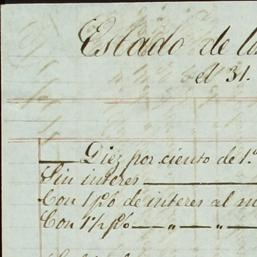 Estado de
el 31.
Diez por ciento de 1.
Sin interes
Con 1 p% de interes al
Con 1 1/2 p% — " — " —